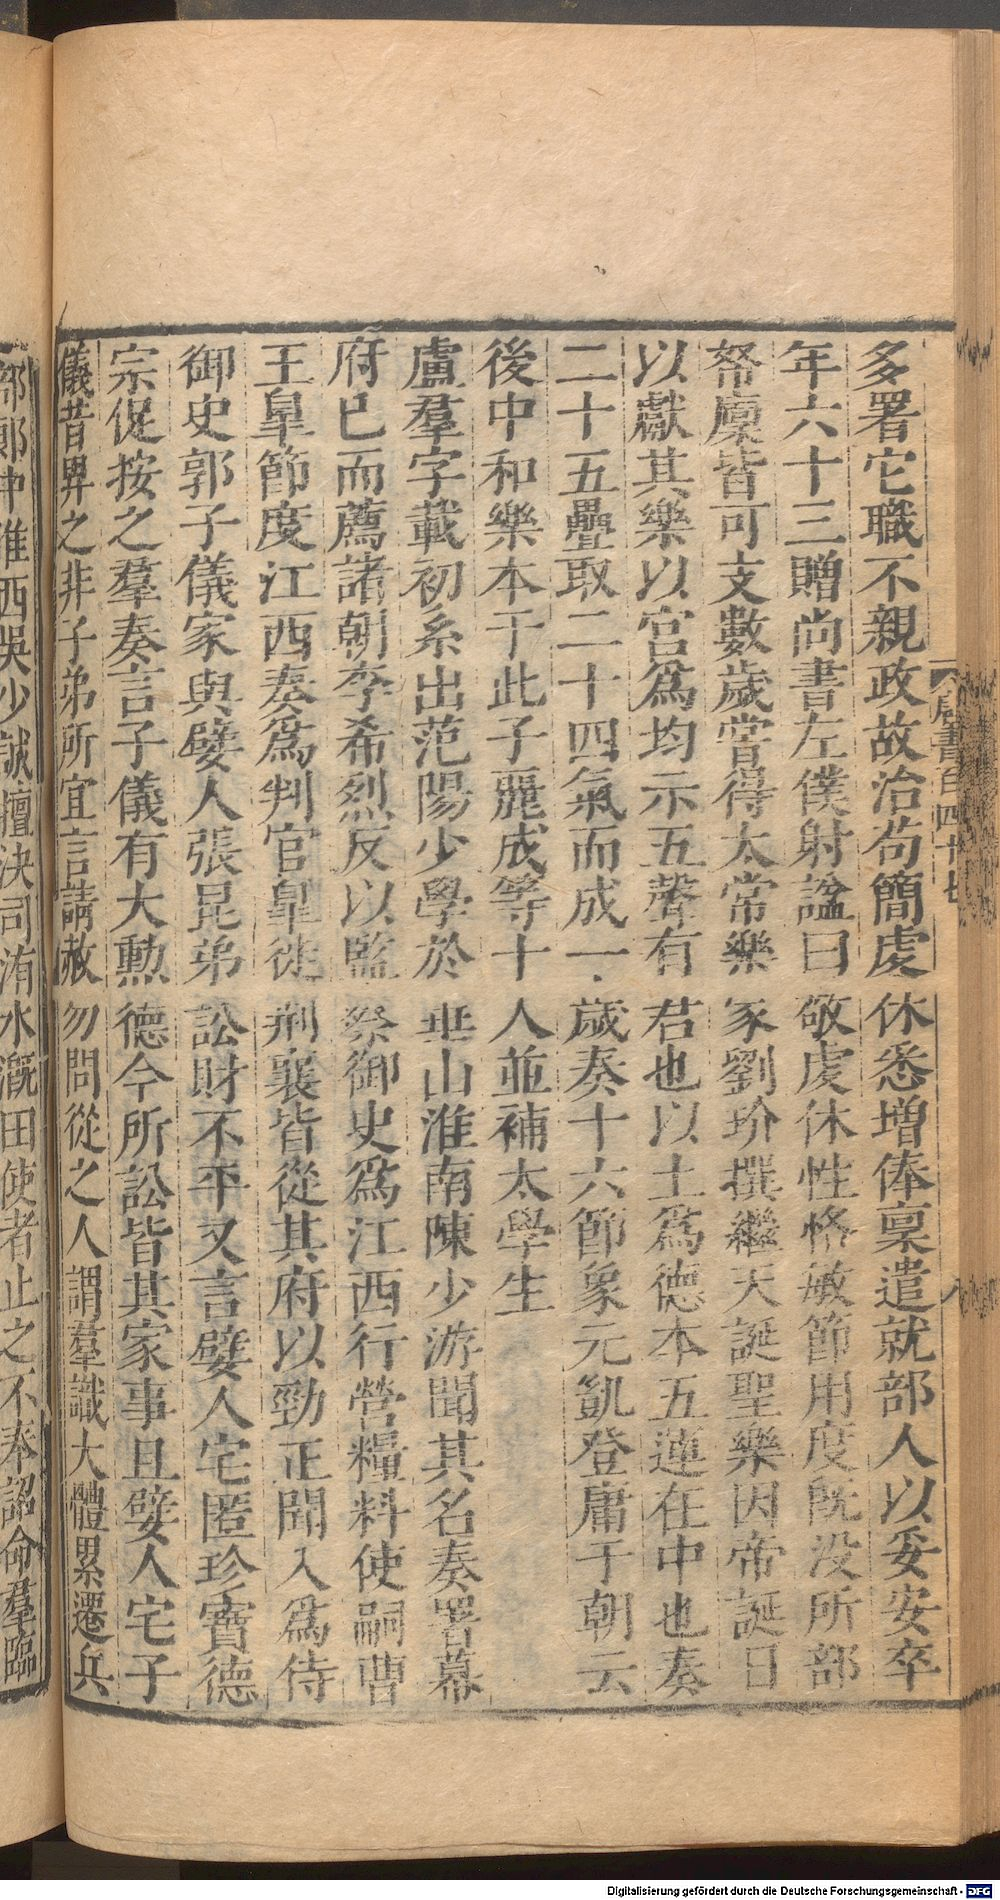 多署它職不親政故治苟簡虔休悉增俸稟遣就部人以妥安卒
年六十三贈尚書左僕射諡曰敬虔休性恪敏節用度既没所部
帑廩皆可支數歲嘗得太常樂家劉玠撰繼天誕聖樂因帝誕日
以獻其樂以宫爲均示五聲有君也以土爲德本五運在中也奏
二十五疊取二十四氣而成一歲奏十六節象元凱登庸于朝云
後中和樂本于此子麗成等十人並補太學生
盧羣字載初系出范陽少學於垂山淮南陳少游聞其名奏署幕
府已而薦諸朝李希烈反以監察御史爲江西行營糧料使嗣曹
王皐節度江西奏爲判官皐徙荆襄皆從其府以勁正聞入爲侍
御史郭子儀家與嬖人張昆弟訟財不平又言嬖人宅匿珍寶德
宗促按之羣奏言子儀有大勲德今所訟皆其家事且嬖人宅子
儀昔畀之非子弟所宜言請赦勿問從之人謂羣識大體累遷兵
部郎中淮西吳少誠擅決司洧水漑田使者止之不奉詔命羣臨
唐書百四十七
八
Digitalisierung gefördert durch die Deutsche Forschungsgemeinschaft - DFG